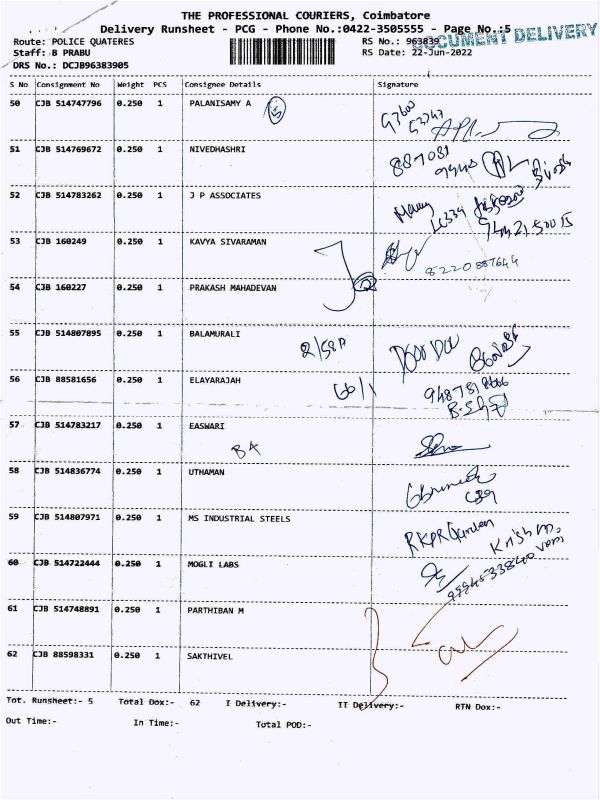 THE PROFESSIONAL COURIERS, Coimbatore
Delivery Runsheet - PCG - Phone No.:0422-3505555 - Page No.:5
Route: POLICE QUATERES RS No.: 963839
DOCUMENT DELIVERY
Staff: B PRABU RS Date: 22-Jun-2022
DRS No.: DCJB96383905
S No Consignment No Weight PCS Consignee Details Signature
50 CJB 514747796 0.250 1 PALANISAMY A
51 CJB 514769672 0.250 1 NIVEDHASHRI
887081
52 CJB 514783262 0.250 1 J P ASSOCIATES
53 CJB 160249 0.250 1 KAVYA SIVARAMAN
8220887644
54 CJB 160227 0.250 1 PRAKASH MAHADEVAN
55 CJB 514807895 0.250 1 BALAMURALI
2/58A
56 CJB 88581656 0.250 1 ELAYARAJAH
57 CJB 514783217 0.250 1 EASWARI
B4
58 CJB 514836774 0.250 1 UTHAMAN
59 CJB 514807971 0.250 1 MS INDUSTRIAL STEELS
RKPR Garden
60 CJB 514722444 0.250 1 MOGLI LABS
61 CJB 514748891 0.250 1 PARTHIBAN M
62 CJB 88598331 0.250 1 SAKTHIVEL
Tot. Runsheet:- 5 Total Dox:- 62 I Delivery:- II Delivery:- RTN Dox:-
Out Time:- In Time:- Total POD:-